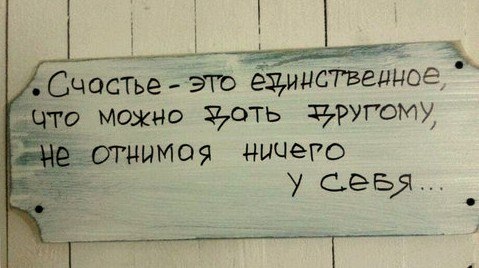 Счастье - это единственное,
что можно дать другому,
не отнимая ничего
у себя...